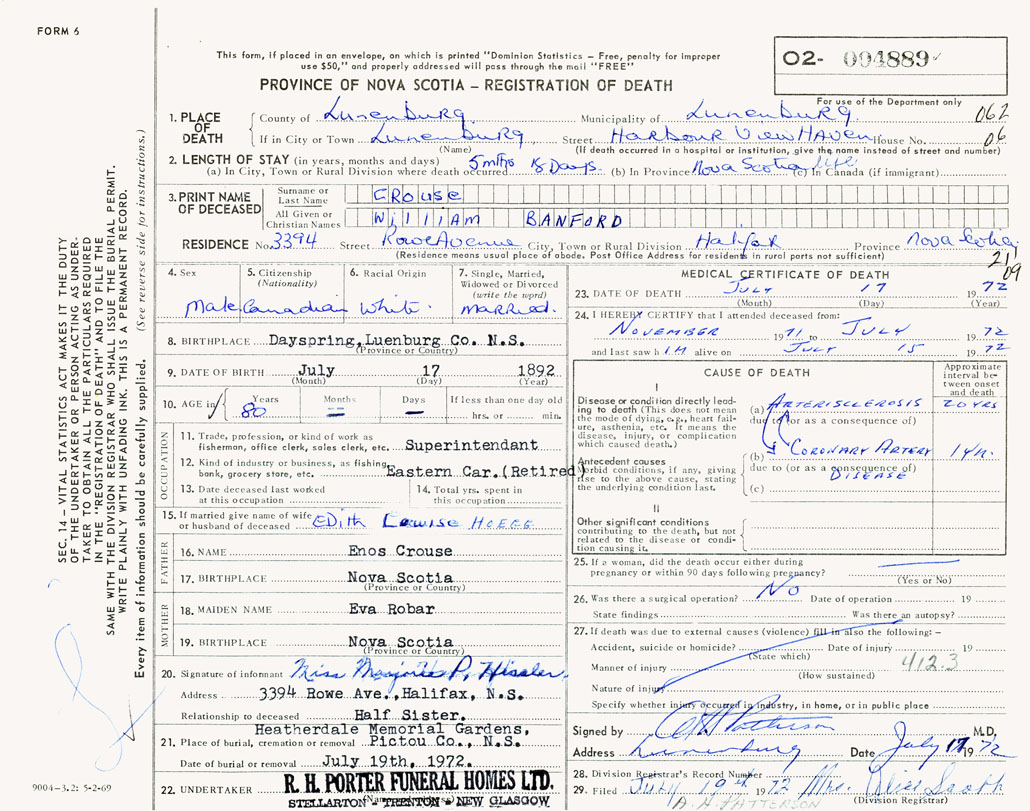 FORM 6
This form, if placed in an envelope, on which is printed "Dominion Statistics – Free, penalty for improper
use $50," and properly addressed will pass through the mail "FREE"
02- 004889
For use of the Department only
PROVINCE OF NOVA SCOTIA – REGISTRATION OF DEATH
062
06
1. PLACE OF DEATH
County of Lunenburg Municipality of Lunenburg
If in City or Town Lunenburg Street Harbour View Haven House No.
(Name) (If death occurred in a hospital or institution, give the name instead of street and number)
2. LENGTH OF STAY (in years, months and days) 5 mths 18 Days. Nova Scotia life
(a) In City, Town or Rural Division where death occurred (b) In Province (c) In Canada (if immigrant)
3. PRINT NAME OF DECEASED
Surname or Last Name CROUSE
All Given or Christian Names WILLIAM BANFORD
RESIDENCE No. 3394 Street Rowe Avenue City, Town or Rural Division Halifax Province Nova Scotia
(Residence means usual place of abode. Post Office Address for residents in rural parts not sufficient)
21
09
4. Sex 5. Citizenship (Nationality) 6. Racial Origin 7. Single, Married, Widowed or Divorced (write the word)
Male Canadian White. Married.
8. BIRTHPLACE Dayspring,Luenburg Co. N.S.
(Province or Country)
9. DATE OF BIRTH July 17 1892
(Month) (Day) (Year)
10. AGE in Years Months Days If less than one day old
80 – – hrs. or min.
OCCUPATION
11. Trade, profession, or kind of work as
fisherman, office clerk, sales clerk, etc. Superintendant
12. Kind of industry or business, as fishing,
bank, grocery store, etc. Eastern Car.(Retired)
13. Date deceased last worked
at this occupation
14. Total yrs. spent in
this occupation
15. If married give name of wife
or husband of deceased Edith Louise HOEGG
FATHER
16. NAME Enos Crouse
17. BIRTHPLACE Nova Scotia
(Province or Country)
MOTHER
18. MAIDEN NAME Eva Robar
19. BIRTHPLACE Nova Scotia
(Province or Country)
20. Signature of informant Miss P.
Address 3394 Rowe Ave.,Halifax, N.S.
Relationship to deceased Half Sister.
Heatherdale Memorial Gardens,
21. Place of burial, cremation or removal Pictou Co., N.S.
Date of burial or removal July 19th, 1972.
22. UNDERTAKER R. H. PORTER FUNERAL HOMES LTD.
STELLARTON - TRENTON - NEW GLASGOW
MEDICAL CERTIFICATE OF DEATH
23. DATE OF DEATH July 17 1972
(Month) (Day) (Year)
24. I HEREBY CERTIFY that I attended deceased from:
NOVEMBER 1971 to JULY 1972
and last saw h IM alive on JULY 15 1972
CAUSE OF DEATH
Approximate interval between onset and death
I
Disease or condition directly leading to death (This does not mean the mode of dying, e.g., heart failure, asthenia, etc. It means the disease, injury, or complication which caused death.)
(a) ARTERISCLEROSIS 20 YRS
due to (or as a consequence of)
Antecedent causes
Morbid conditions, if any, giving rise to the above cause, stating the underlying condition last.
(b) CORONARY ARTERY 1 yr.
due to (or as a consequence of)
DISEASE
(c)
II
Other significant conditions
contributing to the death, but not related to the disease or condition causing it.
25. If a woman, did the death occur either during
pregnancy or within 90 days following pregnancy?
(Yes or No)
26. Was there a surgical operation? No Date of operation 19
State findings Was there an autopsy?
27. If death was due to external causes (violence) fill in also the following: –
Accident, suicide or homicide? Date of injury 19
(State which)
Manner of injury 412.3
(How sustained)
Nature of injury
Specify whether injury occurred in industry, in home, or in public place
Signed by Patterson M.D.
Address Lunenburg Date July 17 1972
28. Division Registrar's Record Number
29. Filed July 19th 1972 Mrs. Alice
(Division Registrar)
A. H. PATTERSON
SEC. 14 – VITAL STATISTICS ACT MAKES IT THE DUTY
OF THE UNDERTAKER OR PERSON ACTING AS UNDER-
TAKER TO OBTAIN ALL THE PARTICULARS REQUIRED
IN THE "REGISTRATION OF DEATH" AND TO FILE THE
SAME WITH THE DIVISION REGISTRAR WHO SHALL ISSUE THE BURIAL PERMIT.
WRITE PLAINLY WITH UNFADING INK. THIS IS A PERMANENT RECORD.
Every item of information should be carefully supplied. (See reverse side for instructions.)
9004–3.2: 5-2-69